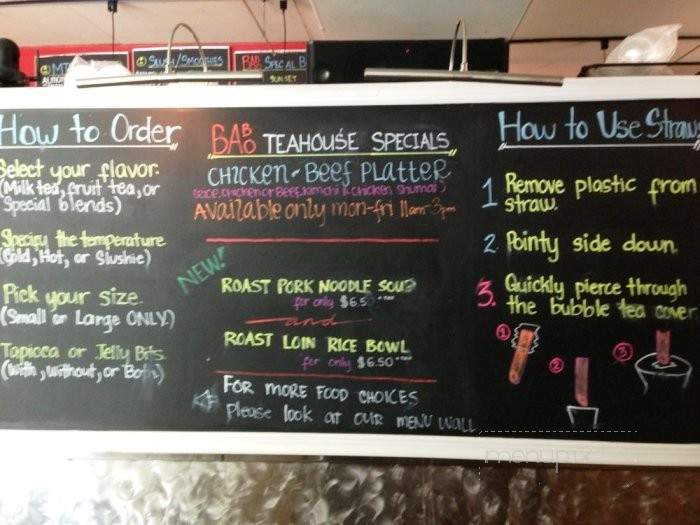 SLUSH/SMOOTHIES
SPECIAL B
SUNSET
How to Order
Select your flavor.
(Milk tea, fruit tea, or
Special blends)
Specify the temperature
(Cold, Hot, or Slushie)
Pick your size.
(Small or Large ONLY.)
Tapioca or Jelly Bits.
(With, without, or Both)
BAO BAO TEAHOUSE SPECIALS
CHICKEN - BEEF PLATTER
(rice, chicken or Beef, kimchi & chicken shumai)
AVAILABLE only mon-fri 11am-3pm
NEW!
ROAST PORK NOODLE SOUP
for only $6.50 +tax
and
ROAST LOIN RICE BOWL
for only $6.50 +tax
FOR MORE FOOD CHOICES
Please look at our menu wall
How to Use Straw
1 Remove plastic from
straw.
2. Pointy side down
3. Quickly pierce through
the bubble tea cover
1
2
3
menupix